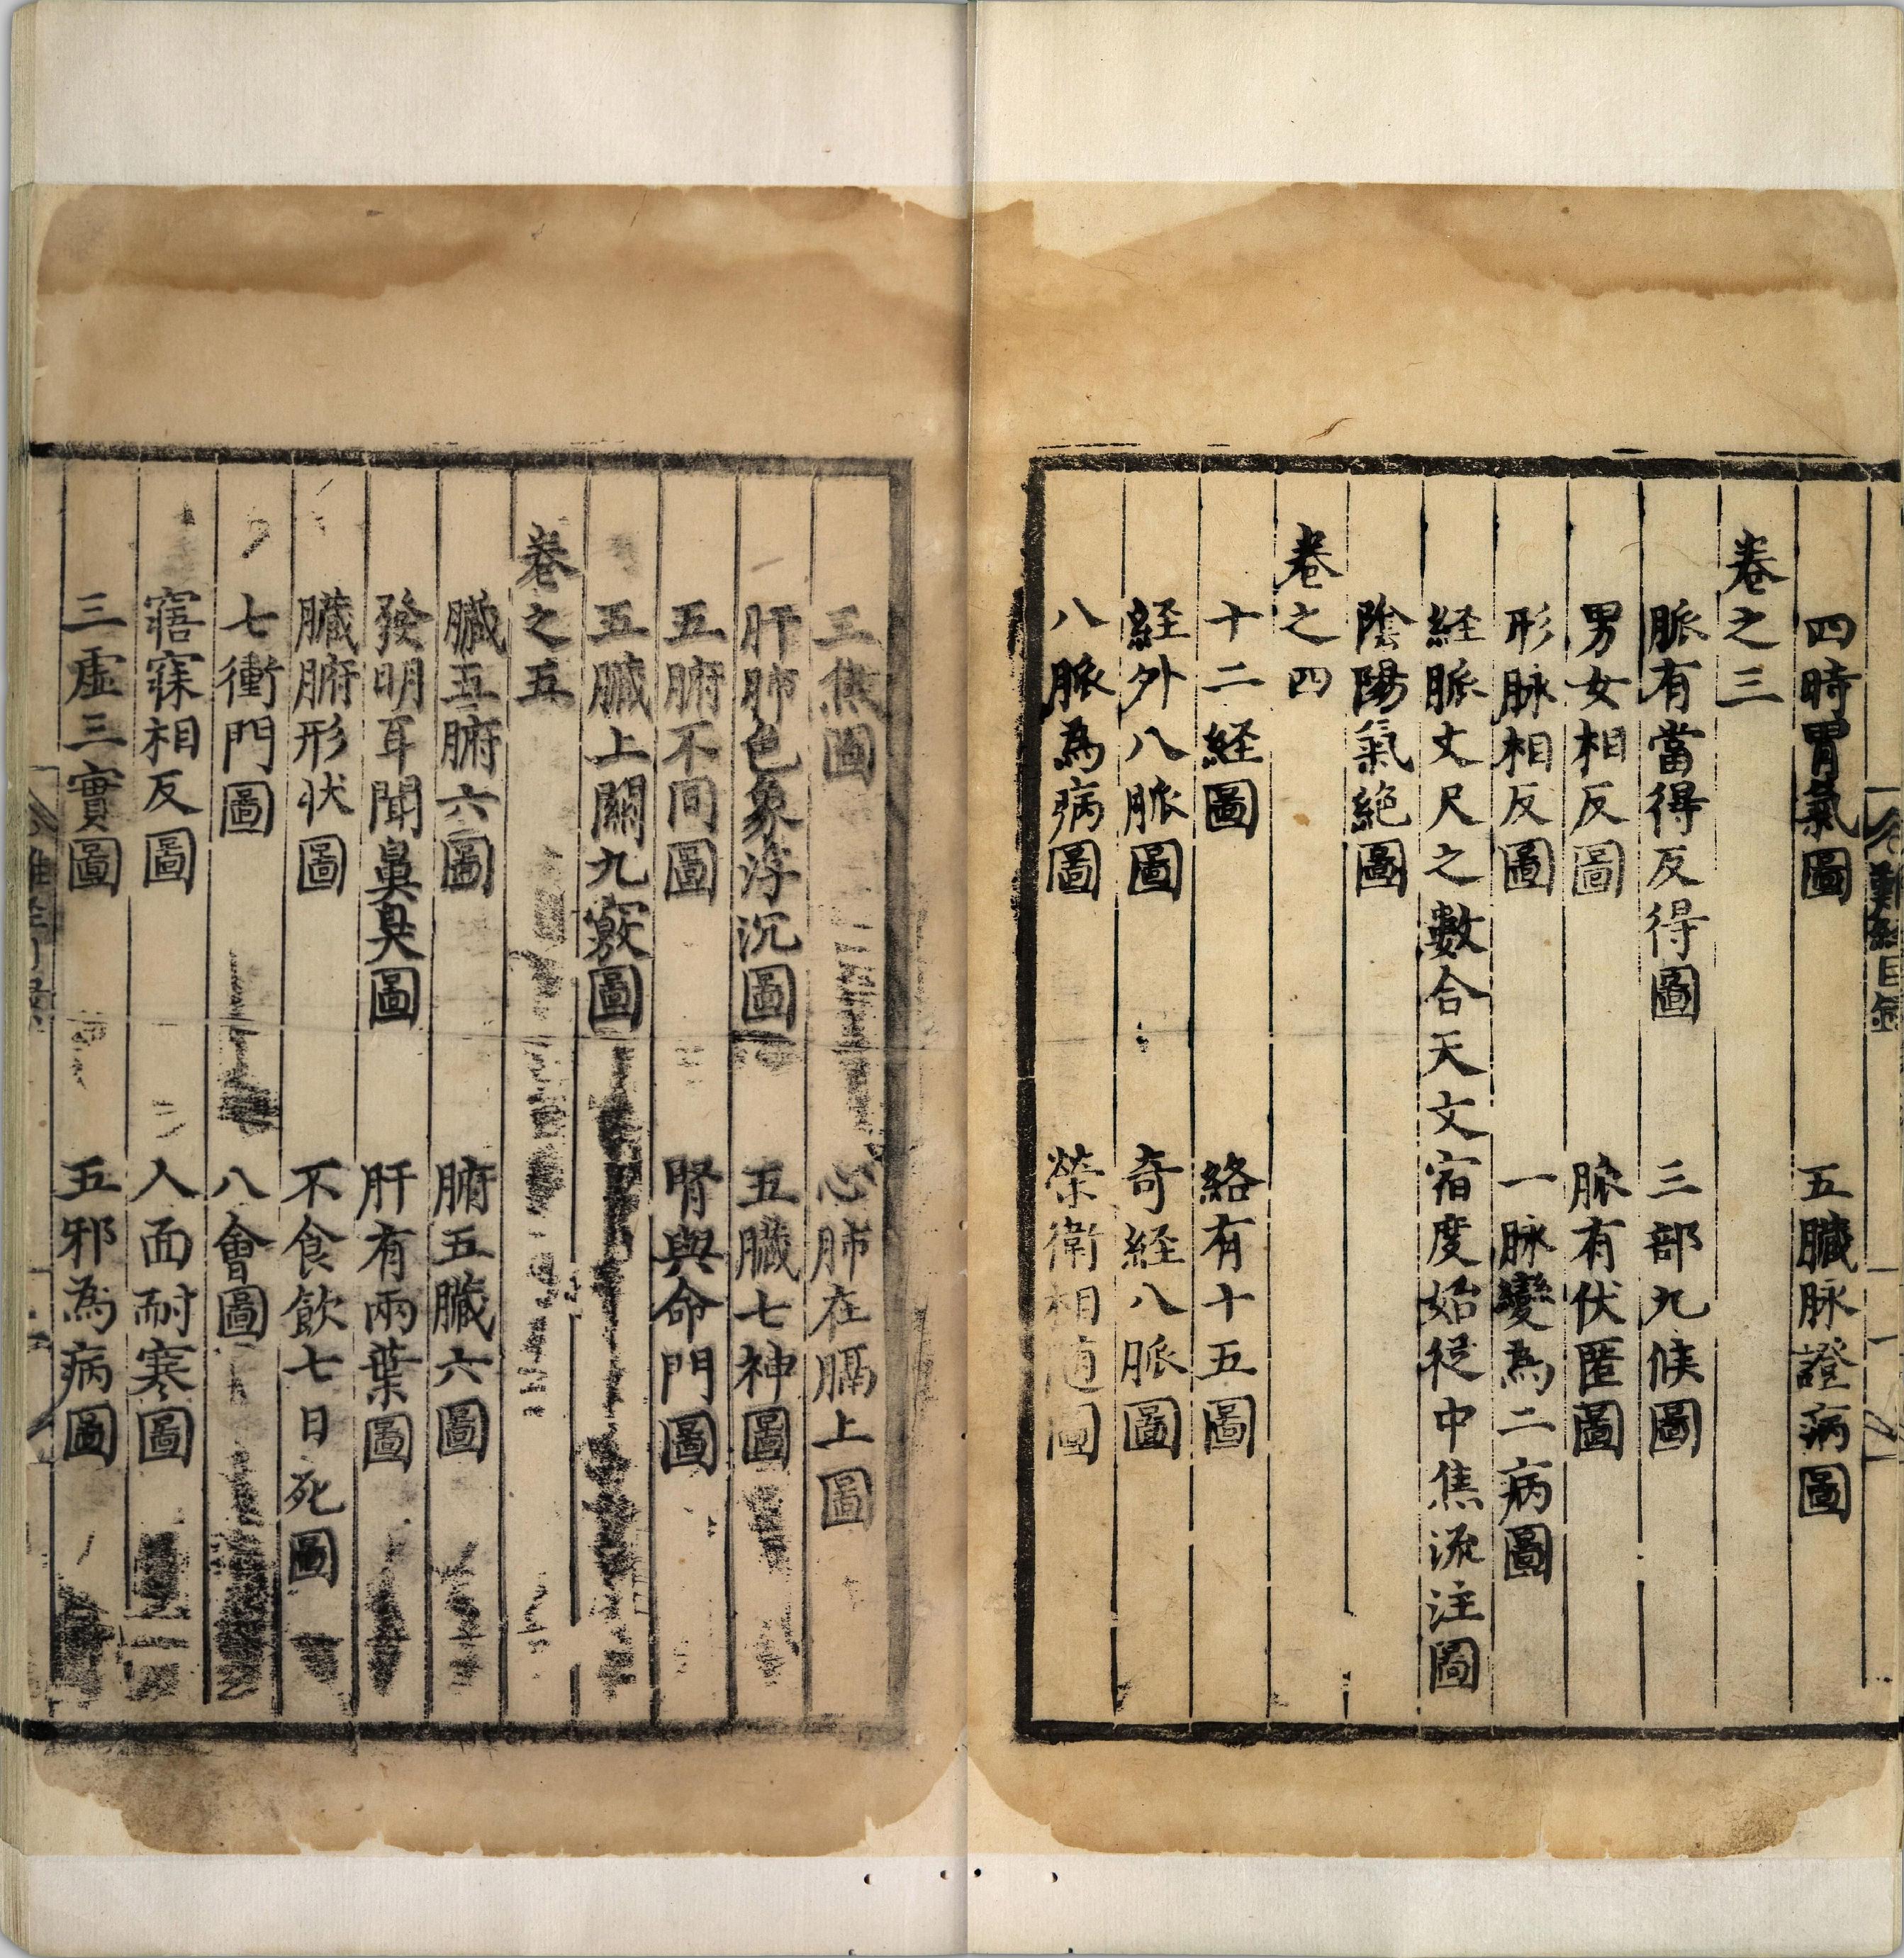 四時胃氣圖　五臟脉證病圖
卷之三
脈有當得反得圖　三部九候圖
男女相反圖　脈有伏匿圖
形脉相反圖　一脉變為二病圖
経脈丈尺之數合天文宿度始從中焦流注圖
陰陽氣絶圖
卷之四
十二経圖　絡有十五圖
経外八脈圖　奇経八脈圖
八脈為病圖　榮衛相随圖
三焦圖　心肺在膈上圖
肝肺色象浮沉圖　五臟七神圖
五腑不同圖　腎與命門圖
五臟上關九竅圖
卷之五
臟五腑六圖　腑五臟六圖
發明耳聞鼻臭圖　肝有兩葉圖
臟腑形状圖　不食飲七日死圖
七衝門圖　八會圖
寤寐相反圖　人面耐寒圖
三虛三實圖　五邪為病圖